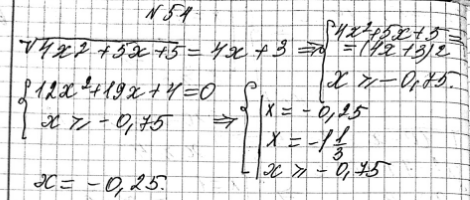 №54
√4x2 + 5x + 5 = 4x + 3 ⇒ { 4x² + 5x + 5 =
= (4x + 3)2
x ⩾ - 0,75.
{ 12x² + 19x + 4 = 0
x ⩾ - 0,75 ⇒ { [ x = - 0,25
x = - 1 1/3
x ⩾ - 0,75
x = - 0,25.